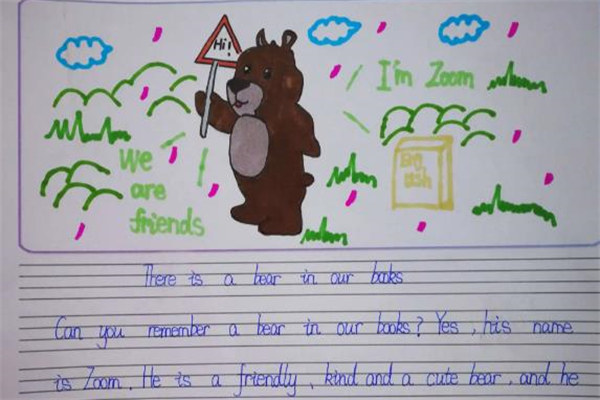 Hi!
I'm Zoom
We
are
friends
Eng
lish
There is a bear in our books
Can you remember a bear in our books? Yes, his name
is Zoom. He is a friendly, kind and a cute bear, and he